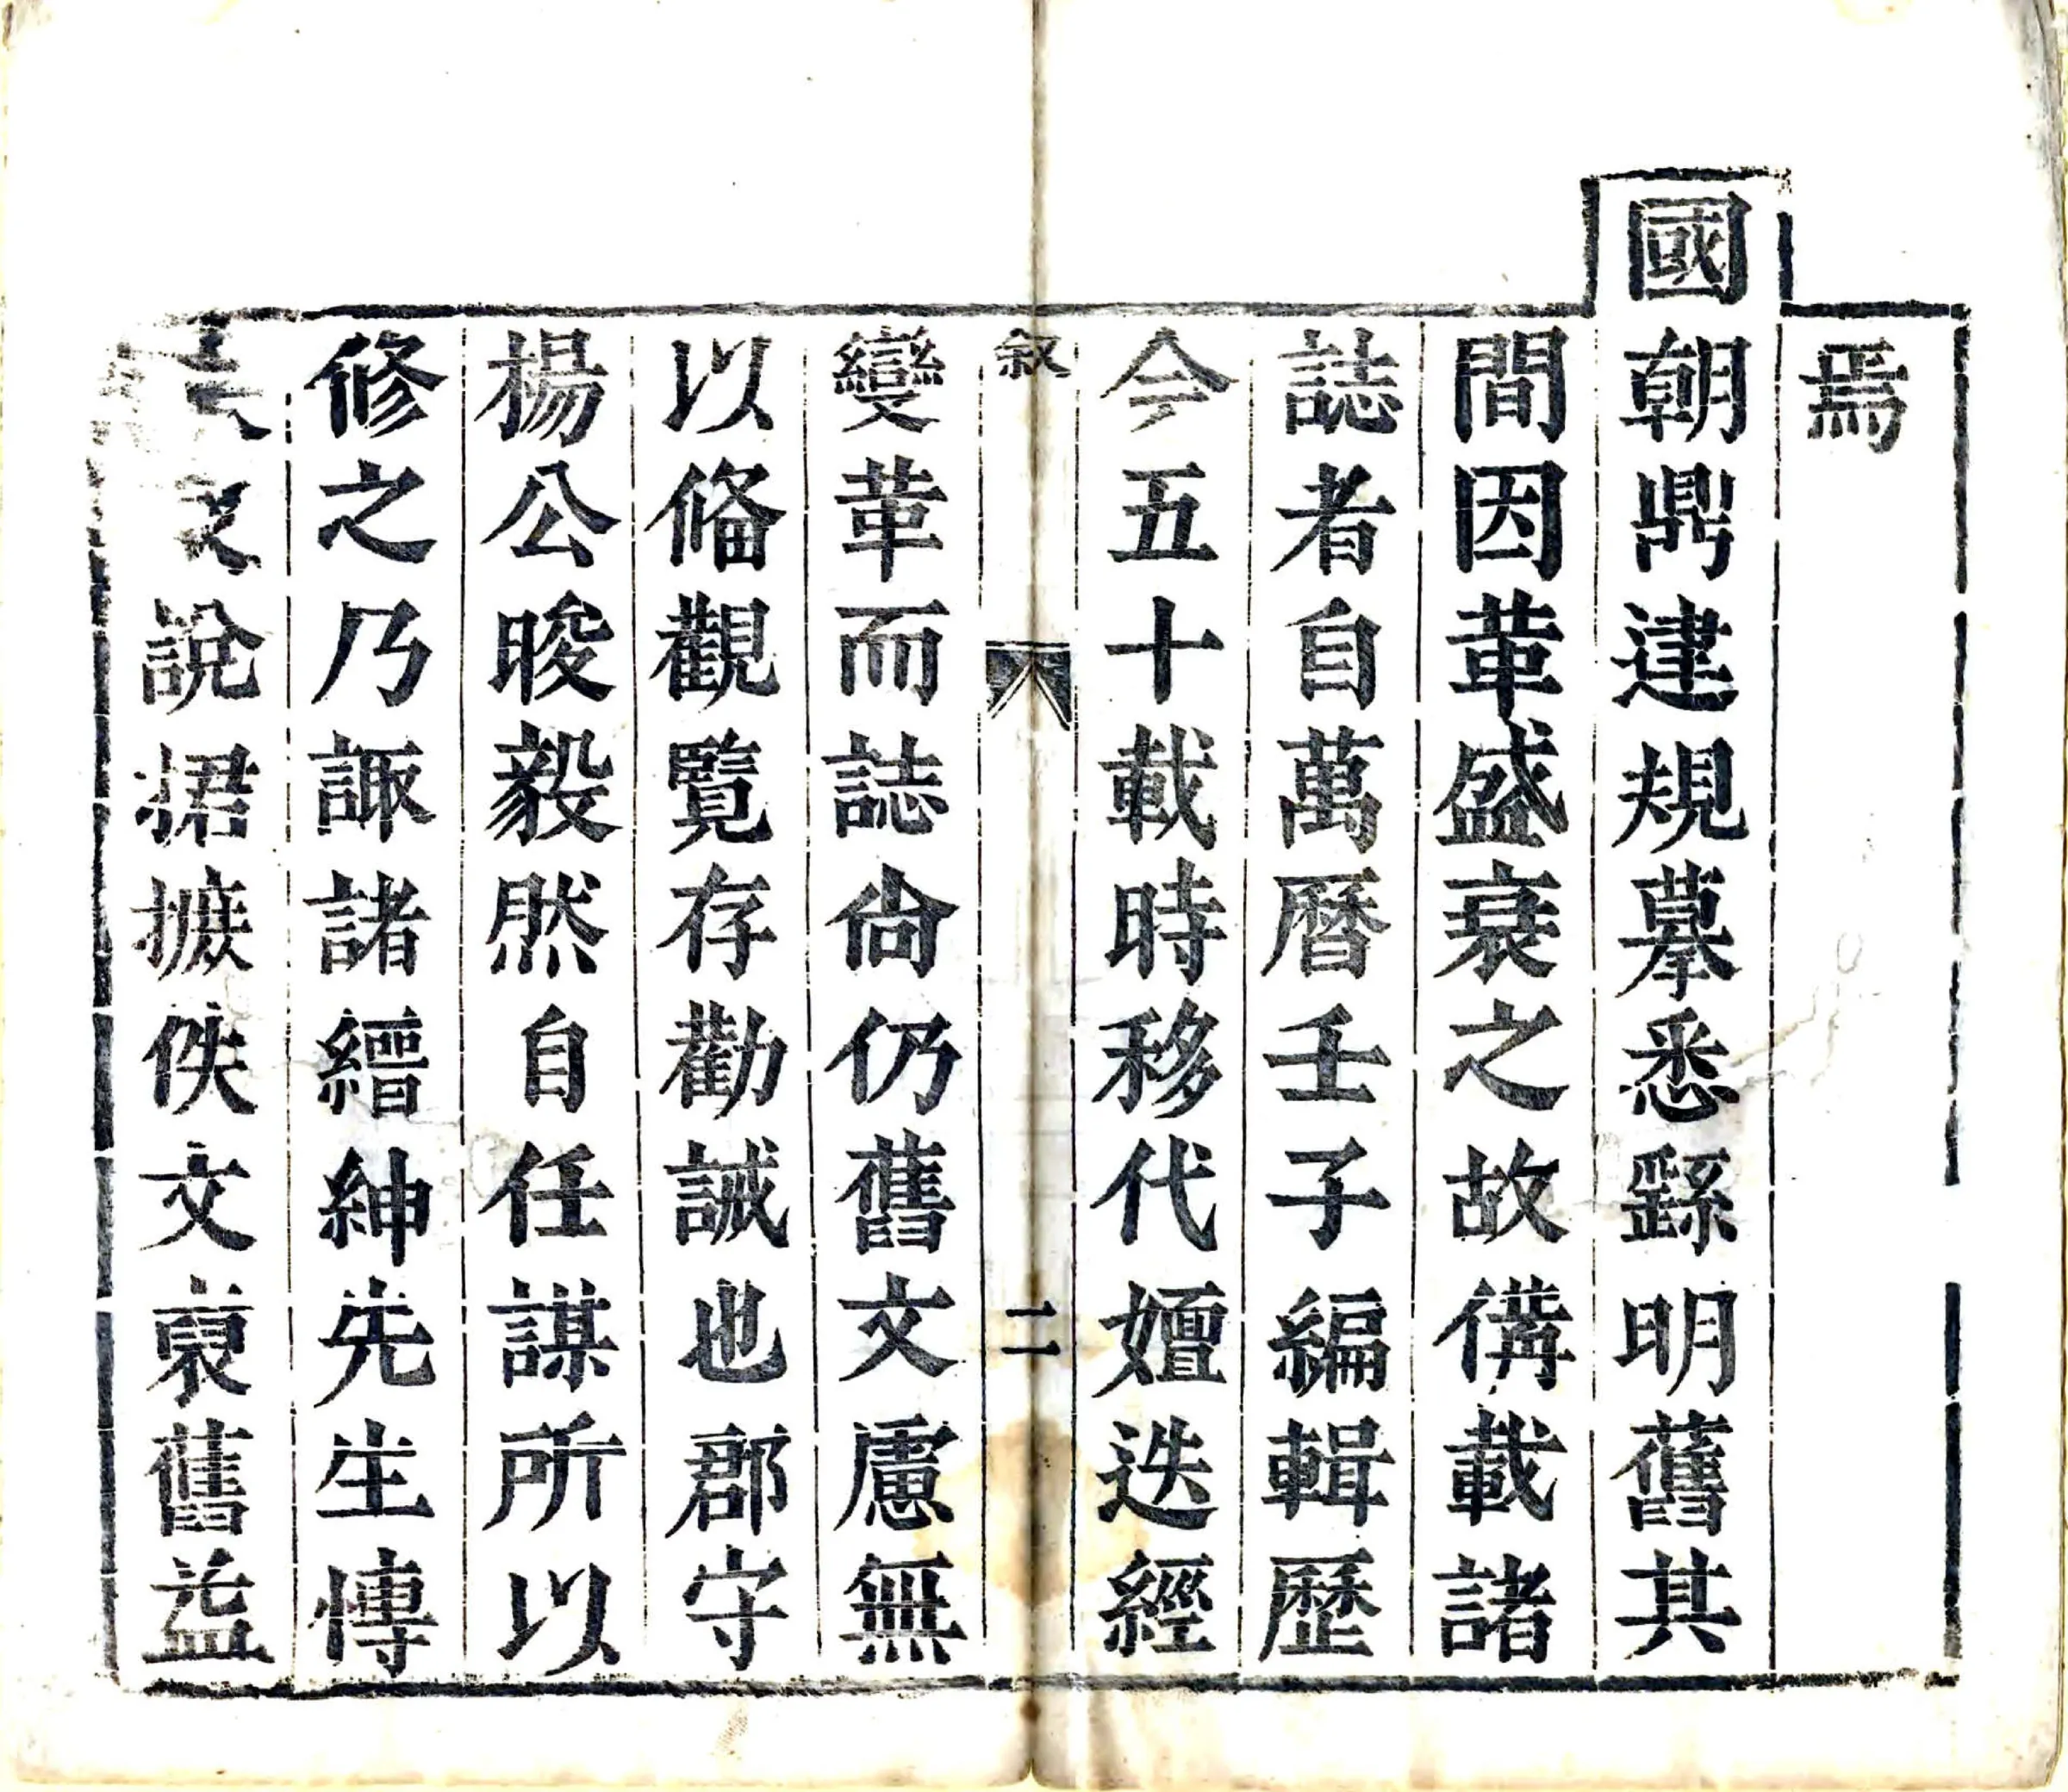 焉
國朝鼎建規摹悉繇明舊其
間因革盛衰之故備載諸
誌者自萬曆壬子編輯歷
今五十載時移代嬗迭經
叙 二
變革而誌尙仍舊文慮無
以俻觀覽存勸誡也郡守
楊公晙毅然自任謀所以
修之乃諏諸縉紳先生愽
說捃摭佚文裒舊益